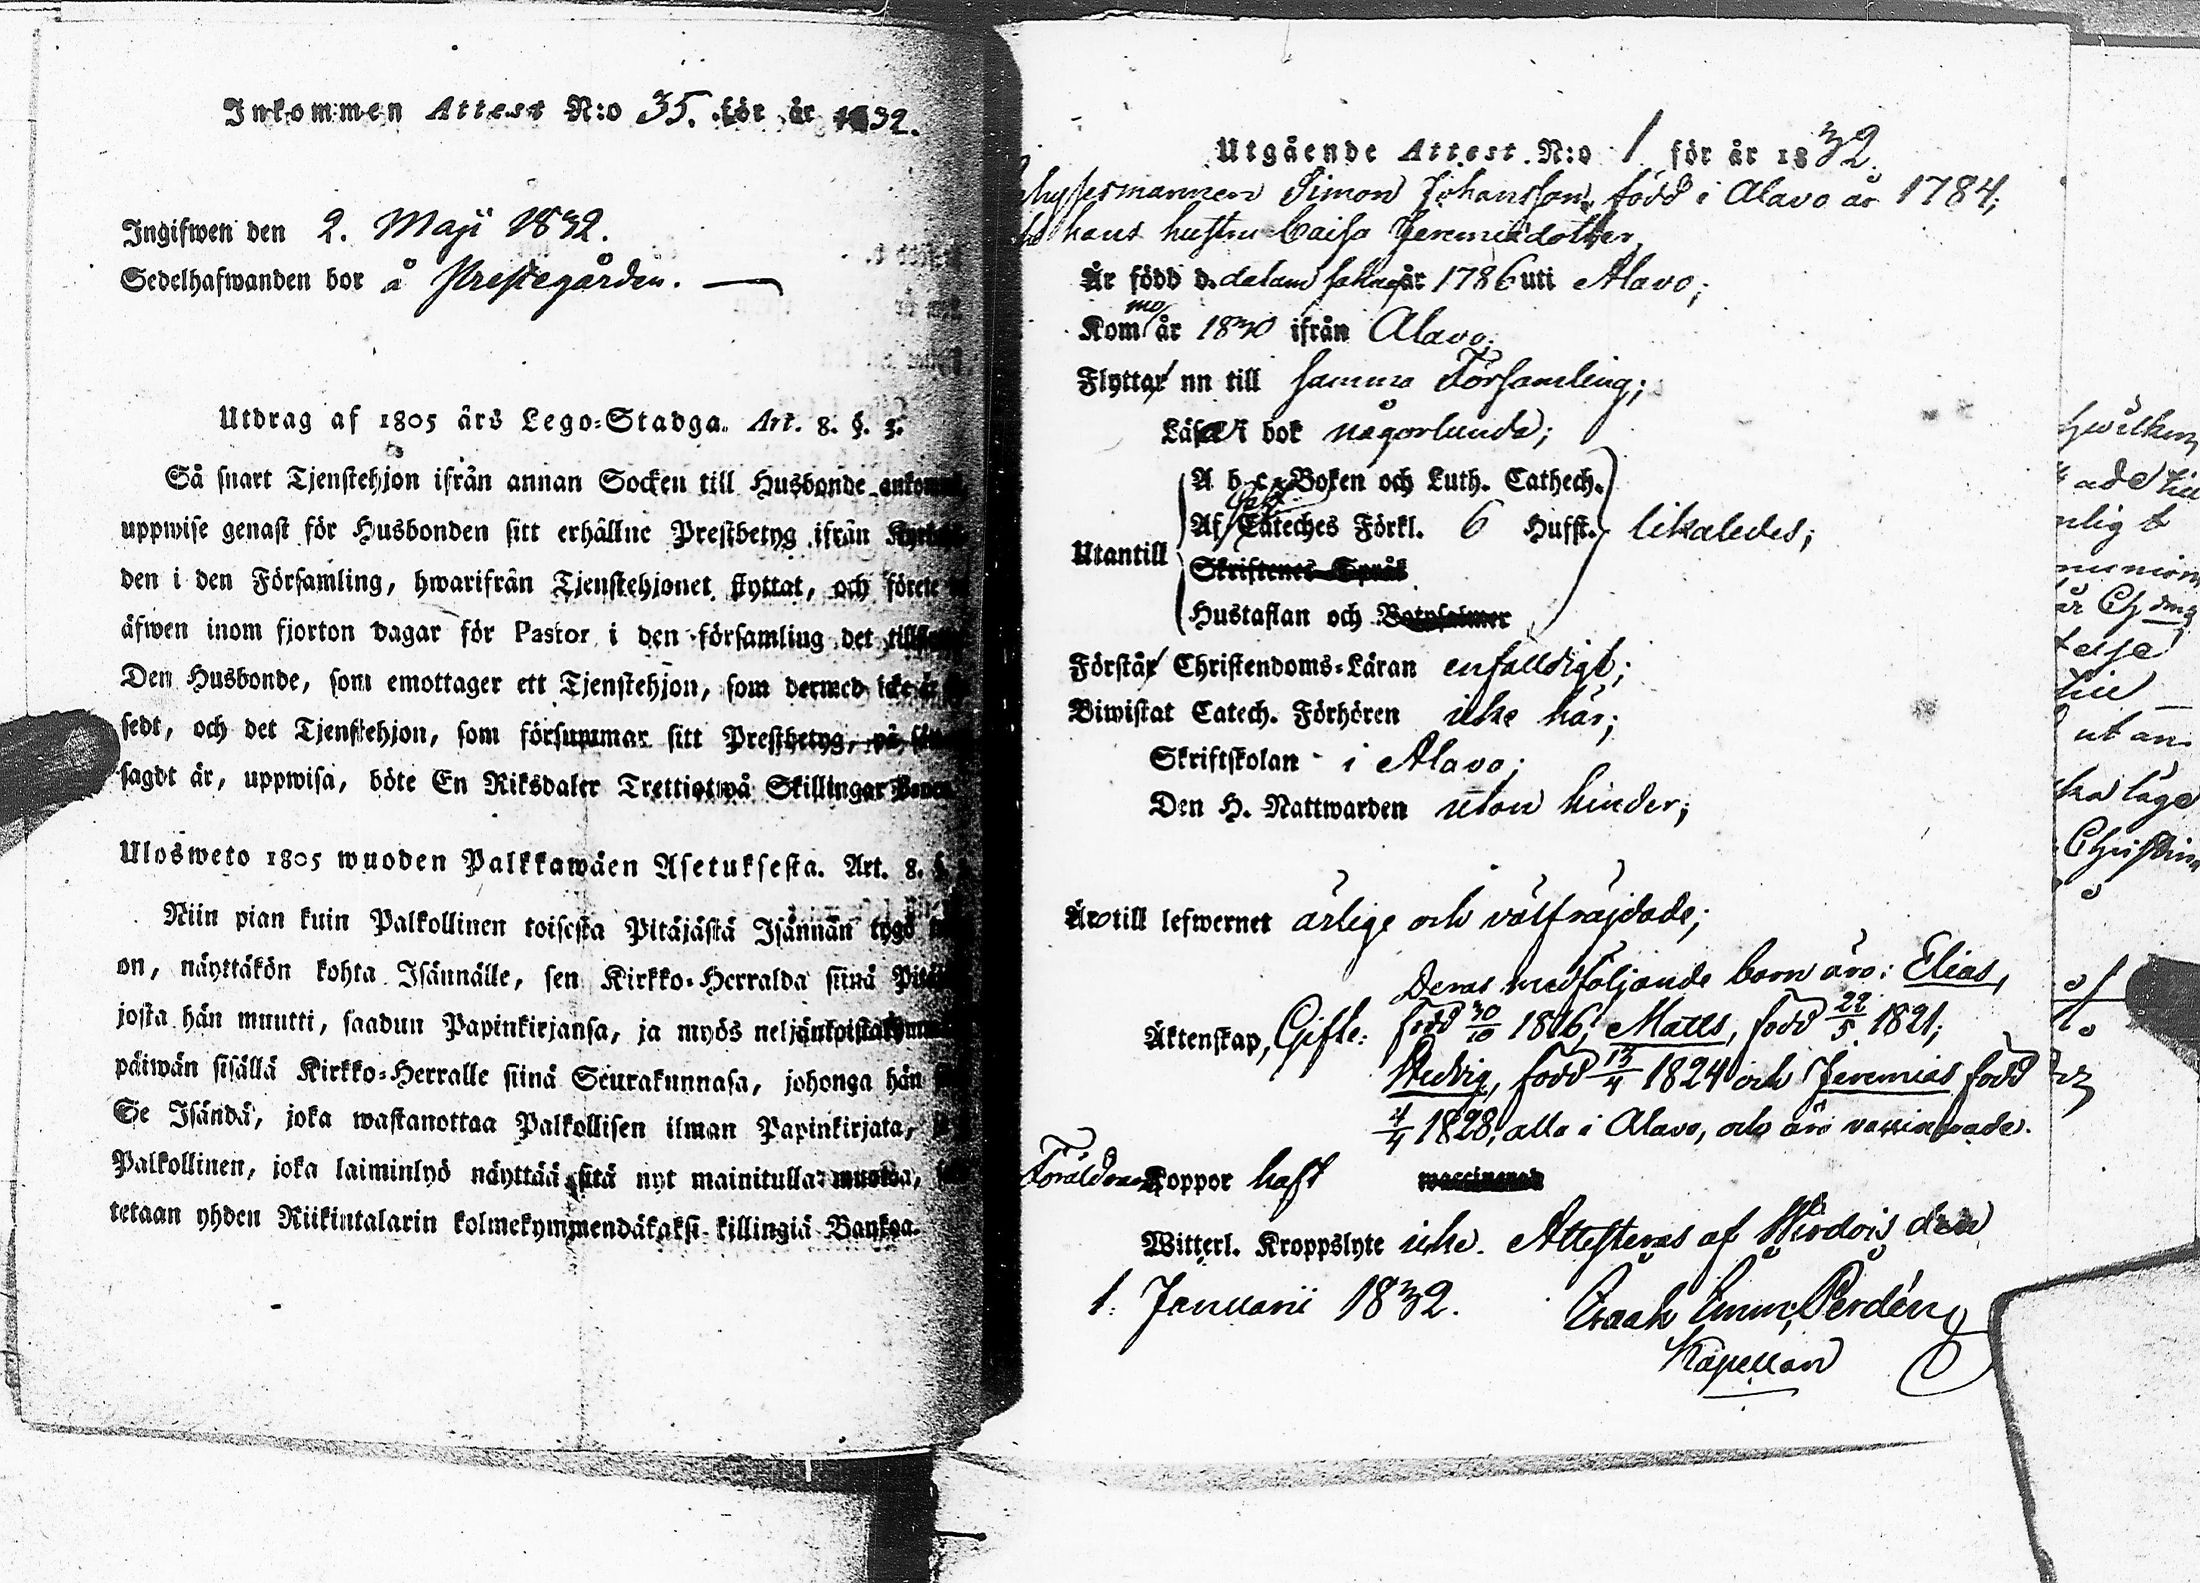 Inkommen Attest N:o 35. för år 1832.
Ingifwen den 2. Maji 1832.
Sedelhafwanden bor å Prestegården. —
Utdrag af 1805 års Lego-Stadga. Art. 8. §. 3.
Så snart Tjenstehjon ifrån annan Socken till Husbonde
uppwise genast för Husbonden sitt erhållne Prestbetyg ifrån
den i den Församling, hwarifrån Tjenstehjonet flyttat, och förete
äfwen inom fjorton dagar för Pastor i den församling det
Den Husbonde, som emottager ett Tjenstehjon, som dermed icke är
sedt, och det Tjenstehjon, som försummar sitt Prestbetyg, på
sagdt är, uppwisa, böte En Riksdaler Trettiotwå Skillingar Banco
Ulosweto 1805 wuoden Palkkawäen Asetuksesta. Art. 8. §.
Niin pian kuin Palkollinen toisesta Pitäjästä Isännän tygö
on, näyttäkön kohta Isännälle, sen Kirkko-Herralda siinä
josta hän muutti, saadun Papinkirjansa, ja myös
päiwän sisällä Kirkko-Herralle siinä Seurakunnasa, johonga hän
Se Isändä, joka wastanottaa Palkollisen ilman Papinkirjata,
Palkollinen, joka laiminlyö näyttää sitä nyt mainitulla muotoa,
tetaan yhden Riikintalarin kolmekymmendäkaksi killingiä Bankoa.
Utgående Attest. N:o 1 för år 1832.
Simon Johansson, född i Alavo år 1784;
hans hustru Caisa Jeremiædotter,
Är född d. datum saknas år 1786 uti Alavo;
Kommo år 1830 ifrån Alavo;
Flytta nu till samma Församling;
Läsa i bok någorlunda;
A b c-Boken och Luth. Cathech.
Af Cateches Förkl. 6 Hufst. likaledes;
Utantill
Skriftenes Språk
Hustaflan och Botpsalmer
Förstå Christendoms-Läran enfalldigt;
Biwistat Catech. Förhören icke här;
Skriftskolan i Alavo;
Den H. Nattwarden utan hinder;
Äro till lefwernet ärlige och välfräjdade;
Deras medföljande barn äro: Elias,
Äktenskap, Gifte: född 30/10 1816; Matts, född 22/5 1821;
Hedvig, född 13/4 1824 och Jeremias född
4/4 1828, alla i Alavo, och äro vaccinerade.
Föräldrarne Koppor haft waccinerad
Witterl. Kroppslyte icke. Attesteras af Wirdois den
1. Januarii 1832. Isaak Emm. Perdén
Kapellan
hwilken
ade till
nlig t
telse
till
utan
ka läge
Christina